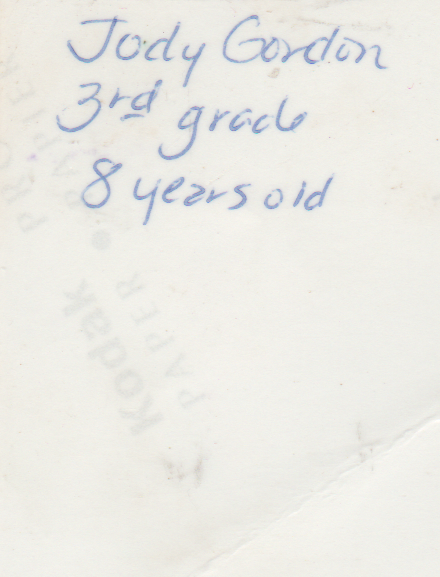 Jody Gordon
3rd grade
8 years old
Kodak
PAPER
PAPIER